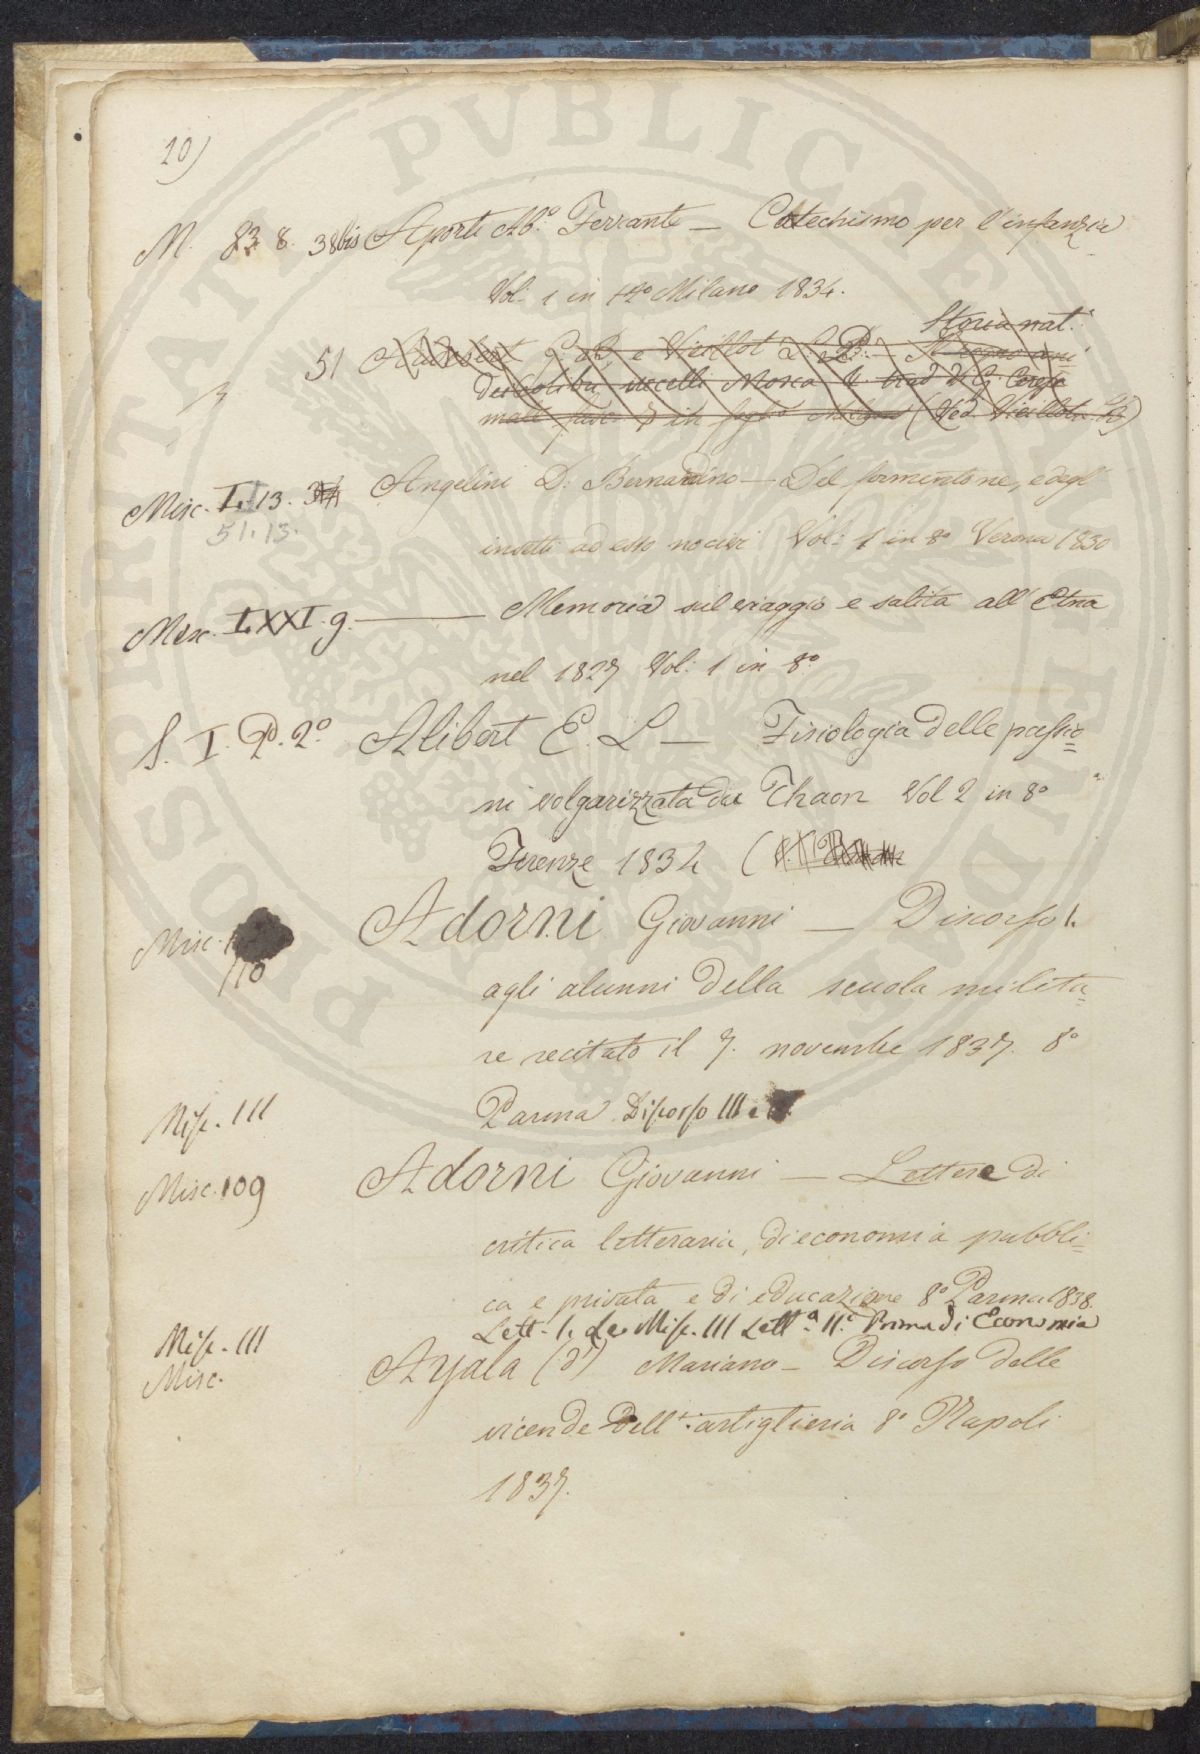 20)
M. 83. 8. 38bis Aporti Ab.e Ferrante — Catechismo per l'infanzia
Vol. 1 in 12o Milano 1834.
Storia nat.
51 Audebert G. B. e Vieillot L. P. — Il regno ani
dei Colibri, uccelli Mosca trad. di G. Ceresa
male fasc. 7 in foglio Milano (Ved. Vieillot L. P.)
Misc. I. 13. Angelini D: Bernardino — Del formentone, e degl'
51.13.
insetti ad esso nocivi Vol: 1 in 8o Verona 1830
Misc. LXXI. 9. ——— Memoria sul viaggio e salita all'Etna
nel 1827 Vol: 1 in 8o
S. I. P. 2o Alibert E. L — Fisiologia delle passio=
ni volgarizzata da Thaon Vol 2 in 8o
Firenze 1834 (
Misc. Adorni Giovanni — Discorso 1.
110
agli alunni della scuola milita=
re recitato il 7. novembre 1837. 8o
Misc. III Parma. Discorso III e
Misc. 109 Adorni Giovanni — Lettere di
critica letteraria, di economia pubbli=
ca e privata e di educazione 8o Parma 1838.
Misc. III Lett. 1. Le Misc. III Lett.a II.a Prima di Economia
Misc. Ayala (d') Mariano — Discorso delle
vicende dell'artiglieria 8o Napoli
1837.
POSSPERITATI PVBLICAE AVGENDAE